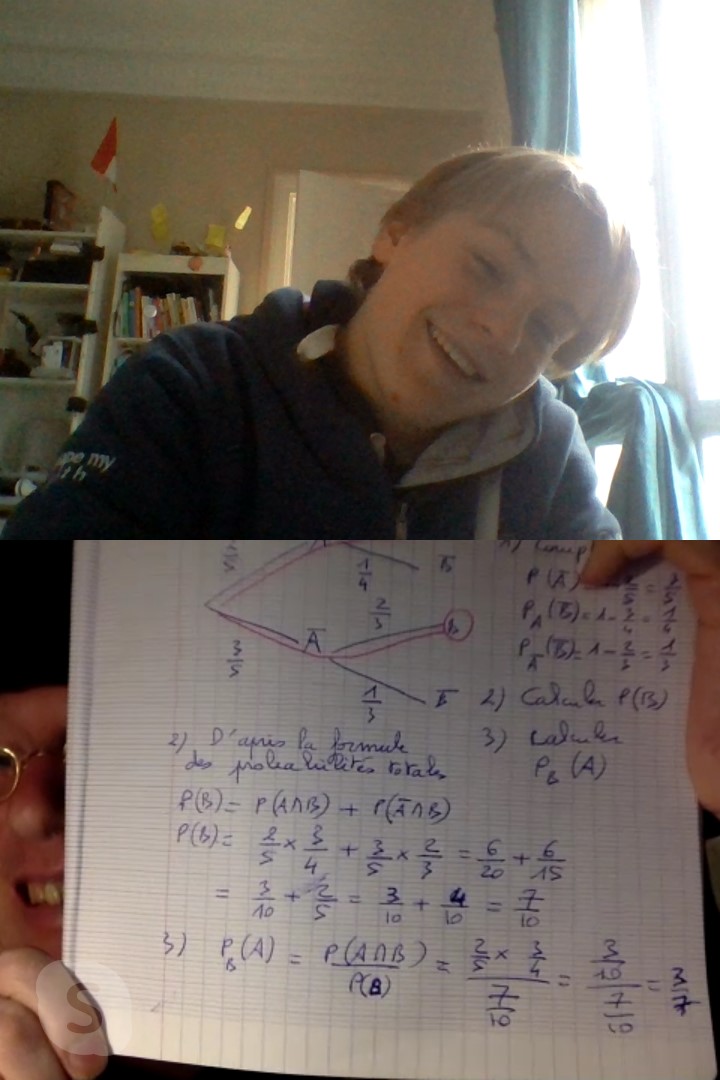 pe my
2/5 A 1/4 B̅
3/5 A̅ 2/3 B
1/3 B̅
P(A̅) = 3/5
P_A(B̅) = 1 - 3/4 = 1/4
P_A̅(B̅) = 1 - 2/3 = 1/3
2) Calculer P(B)
3) Calculer
P_B(A)
2) D'après la formule
des probabilités totales
P(B) = P(A∩B) + P(A̅∩B)
P(B) = 2/5 × 3/4 + 3/5 × 2/3 = 6/20 + 6/15
= 3/10 + 2/5 = 3/10 + 4/10 = 7/10
3) P_B(A) = P(A∩B)/P(B) = (2/5 × 3/4)/(7/10) = (3/10)/(7/10) = 3/7
S